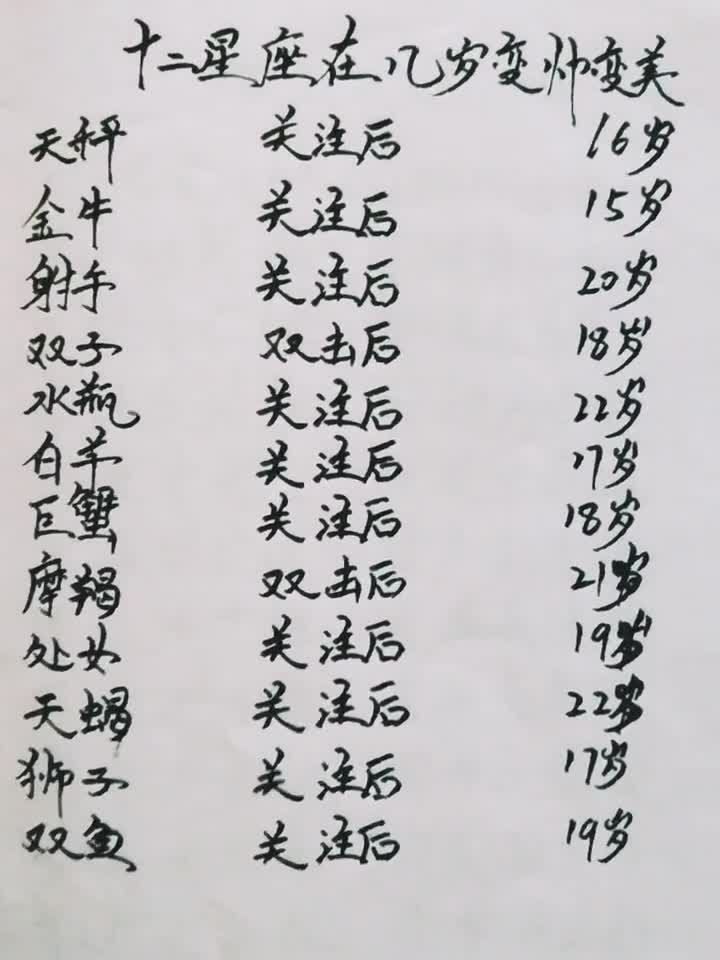 十二星座在几岁变帅变美
天秤 关注后 16岁
金牛 关注后 15岁
射手 关注后 20岁
双子 双击后 18岁
水瓶 关注后 22岁
白羊 关注后 17岁
巨蟹 关注后 18岁
摩羯 双击后 21岁
处女 关注后 19岁
天蝎 关注后 22岁
狮子 关注后 17岁
双鱼 关注后 19岁